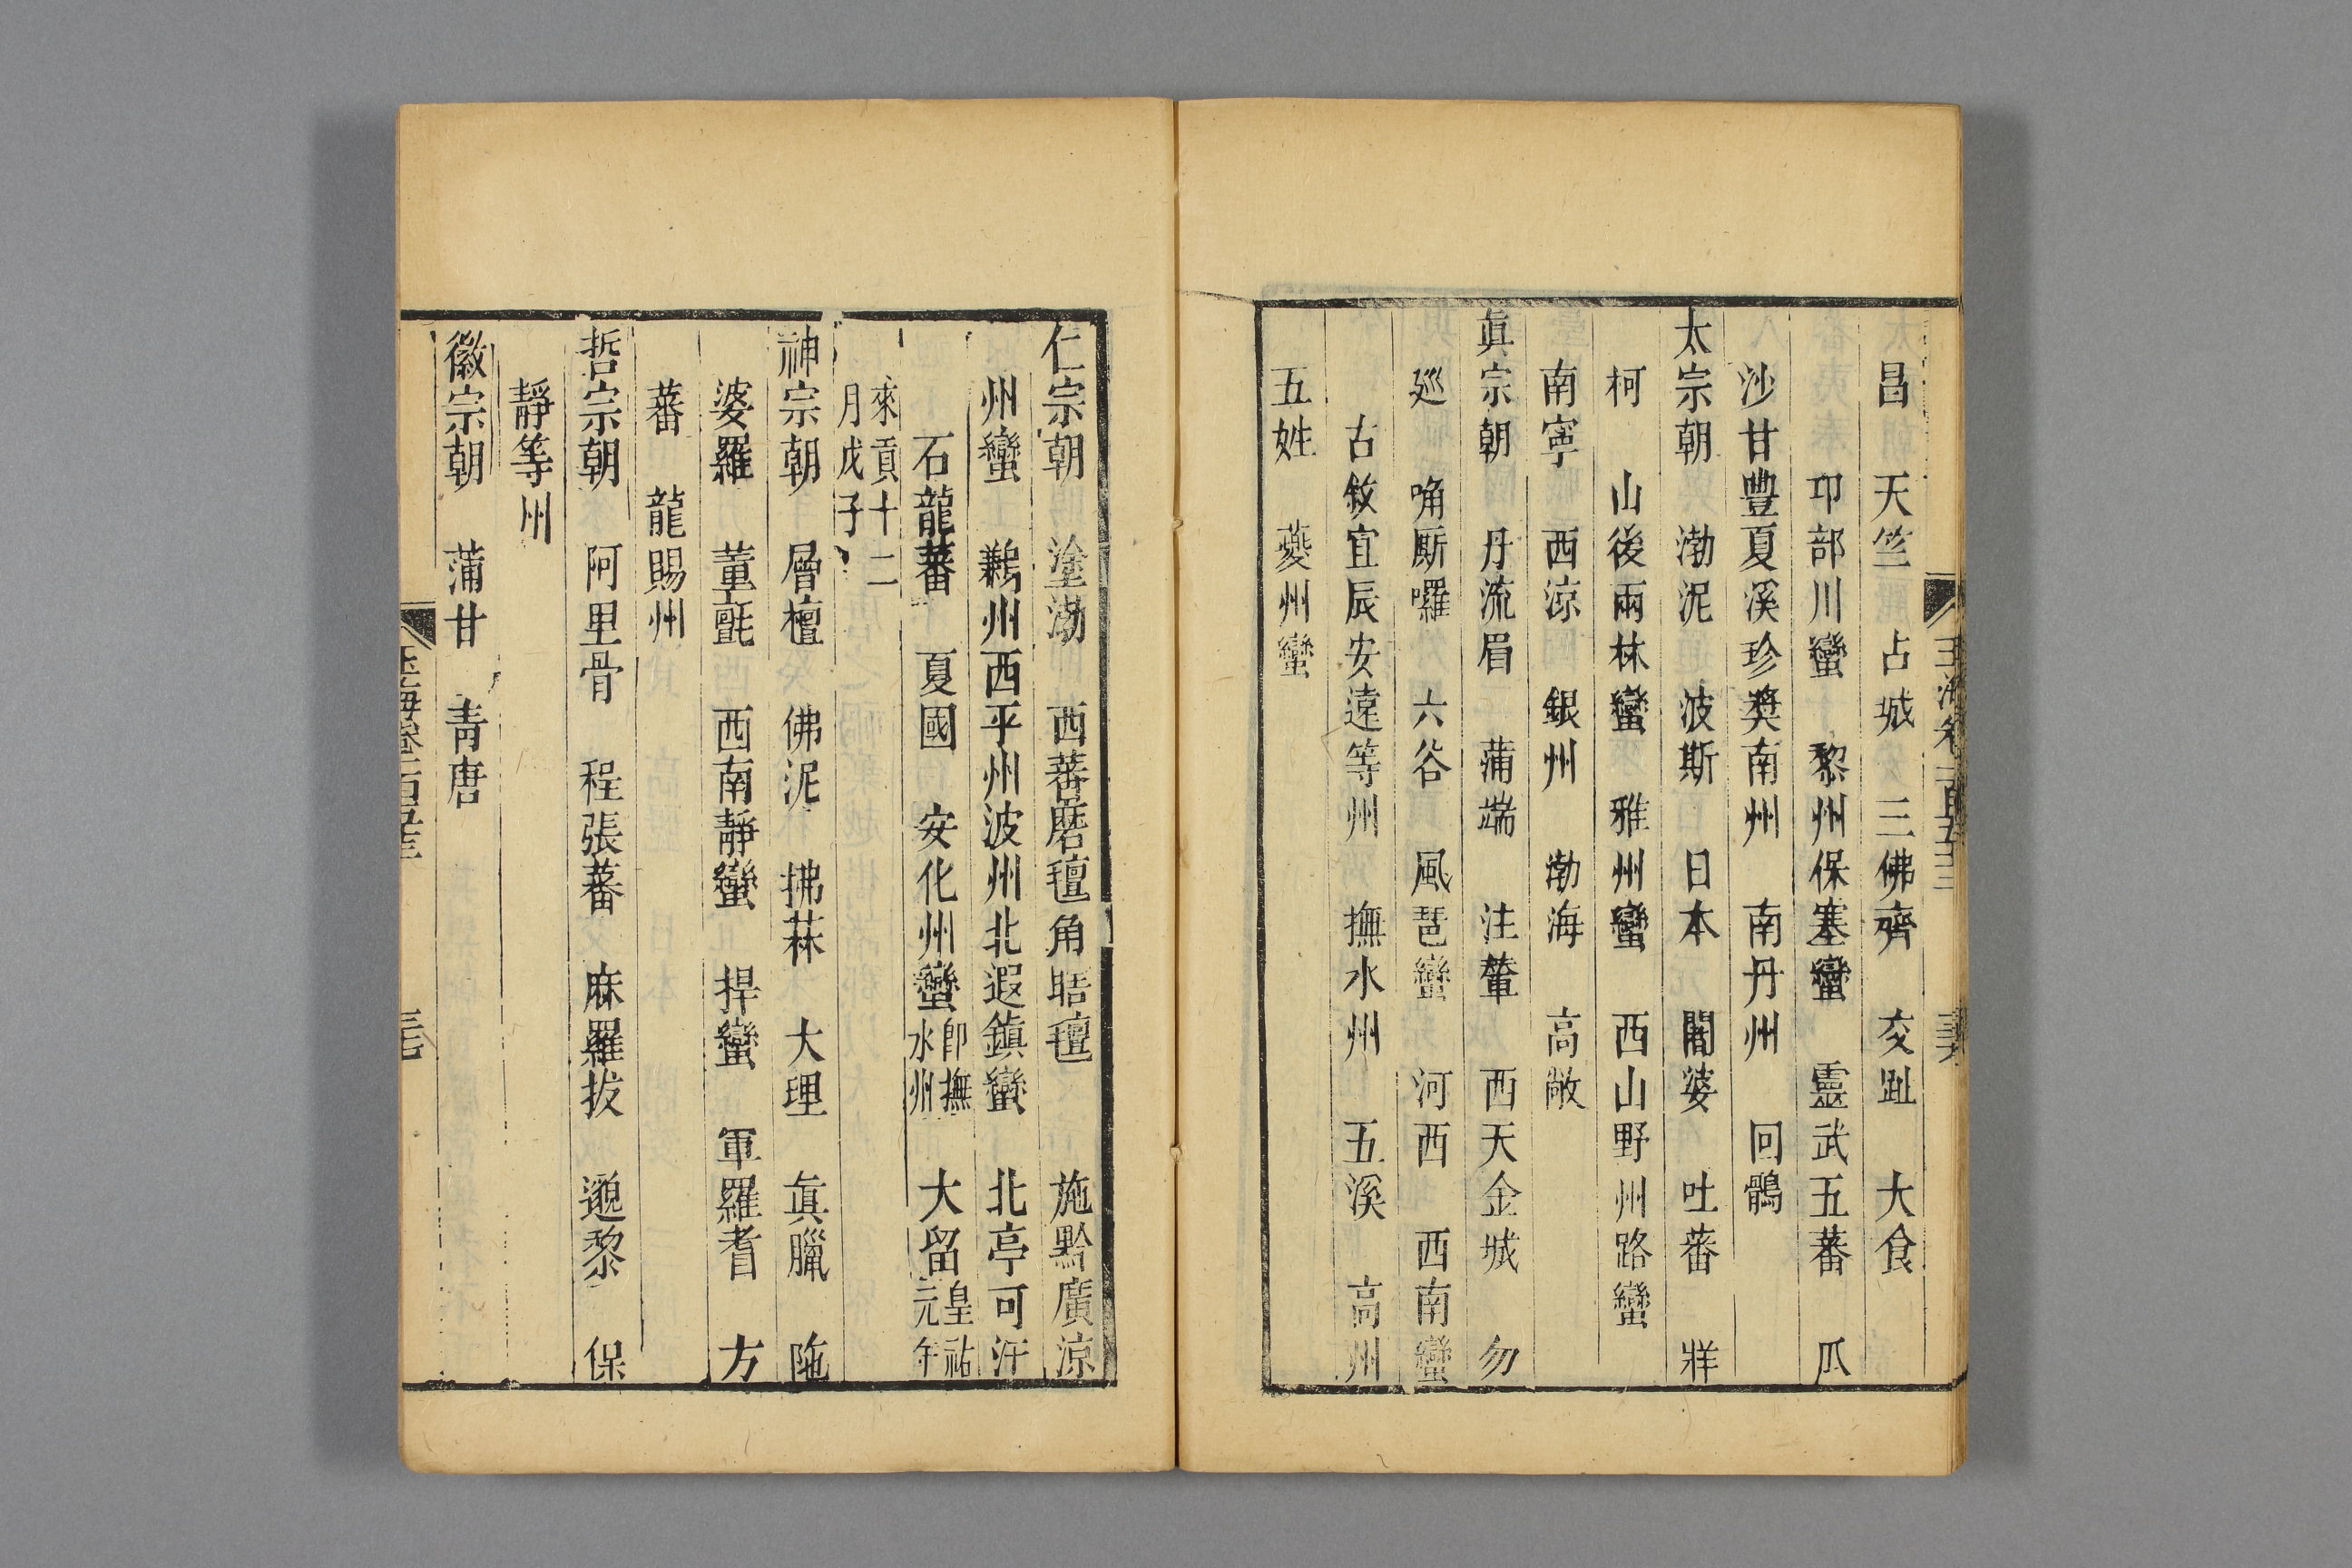 昌 天竺 占城 三佛齊 交趾 大食
卭部川蠻 黎州保塞蠻 靈武五蕃 瓜
沙甘豐夏溪珍奬南州 南丹州 回鶻
太宗朝 渤泥 波斯 日本 闍婆 吐蕃 牂
柯 山後兩林蠻 雅州蠻 西山野州路蠻
南寧 西涼 銀州 渤海 高敞
眞宗朝 丹流眉 蒲端 注輦 西天金城 勿
廵 唃厮囉 六谷 風琶蠻 河西 西南蠻
古敘宜辰安遠等州 撫水州 五溪 高州
五姓 夔州蠻
仁宗朝 塗渤 西蕃磨氊角 氊 施黔廣涼
州蠻 鷀州西平州波州北遐鎮蠻 北亭可汗
石龍蕃 夏國 安化州蠻卽撫水州 大留皇祐元年
來貢十二月戊子
神宗朝 層檀 佛泥 拂菻 大理 眞臘 陁
婆羅 董氊 西南靜蠻 捍蠻 軍羅耆 方
蕃 龍賜州
哲宗朝 阿里骨 程張蕃 麻羅拔 邈黎 保
靜等州
徽宗朝 蒲甘 青唐
玉海卷一百五十三